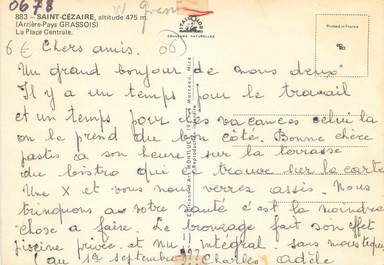 0678
883 - SAINT-CÉZAIRE, altitude 475 m.
(Arrière-Pays GRASSOIS)
La Place Centrale.
COULEURS NATURELLES
Printed in France
6€ Chers amis. 06)
Un grand bonjour de nous deux
Il y a un temps pour le travail
et un temps pour les vacances celui la
on le prend du bon côté. Bonne chère
pastis a son heure sur la terrasse
du bistro qui se trouve sur la carte
Une X et vous nous verrez assis. Nous
trinquons a votre santé c'est la moindre
chose a faire. Le bronzage fait son effet
piscine privée et nu intégral. sans moustiques
au 1er septembre. Charles Adèle
Reproduction interdite